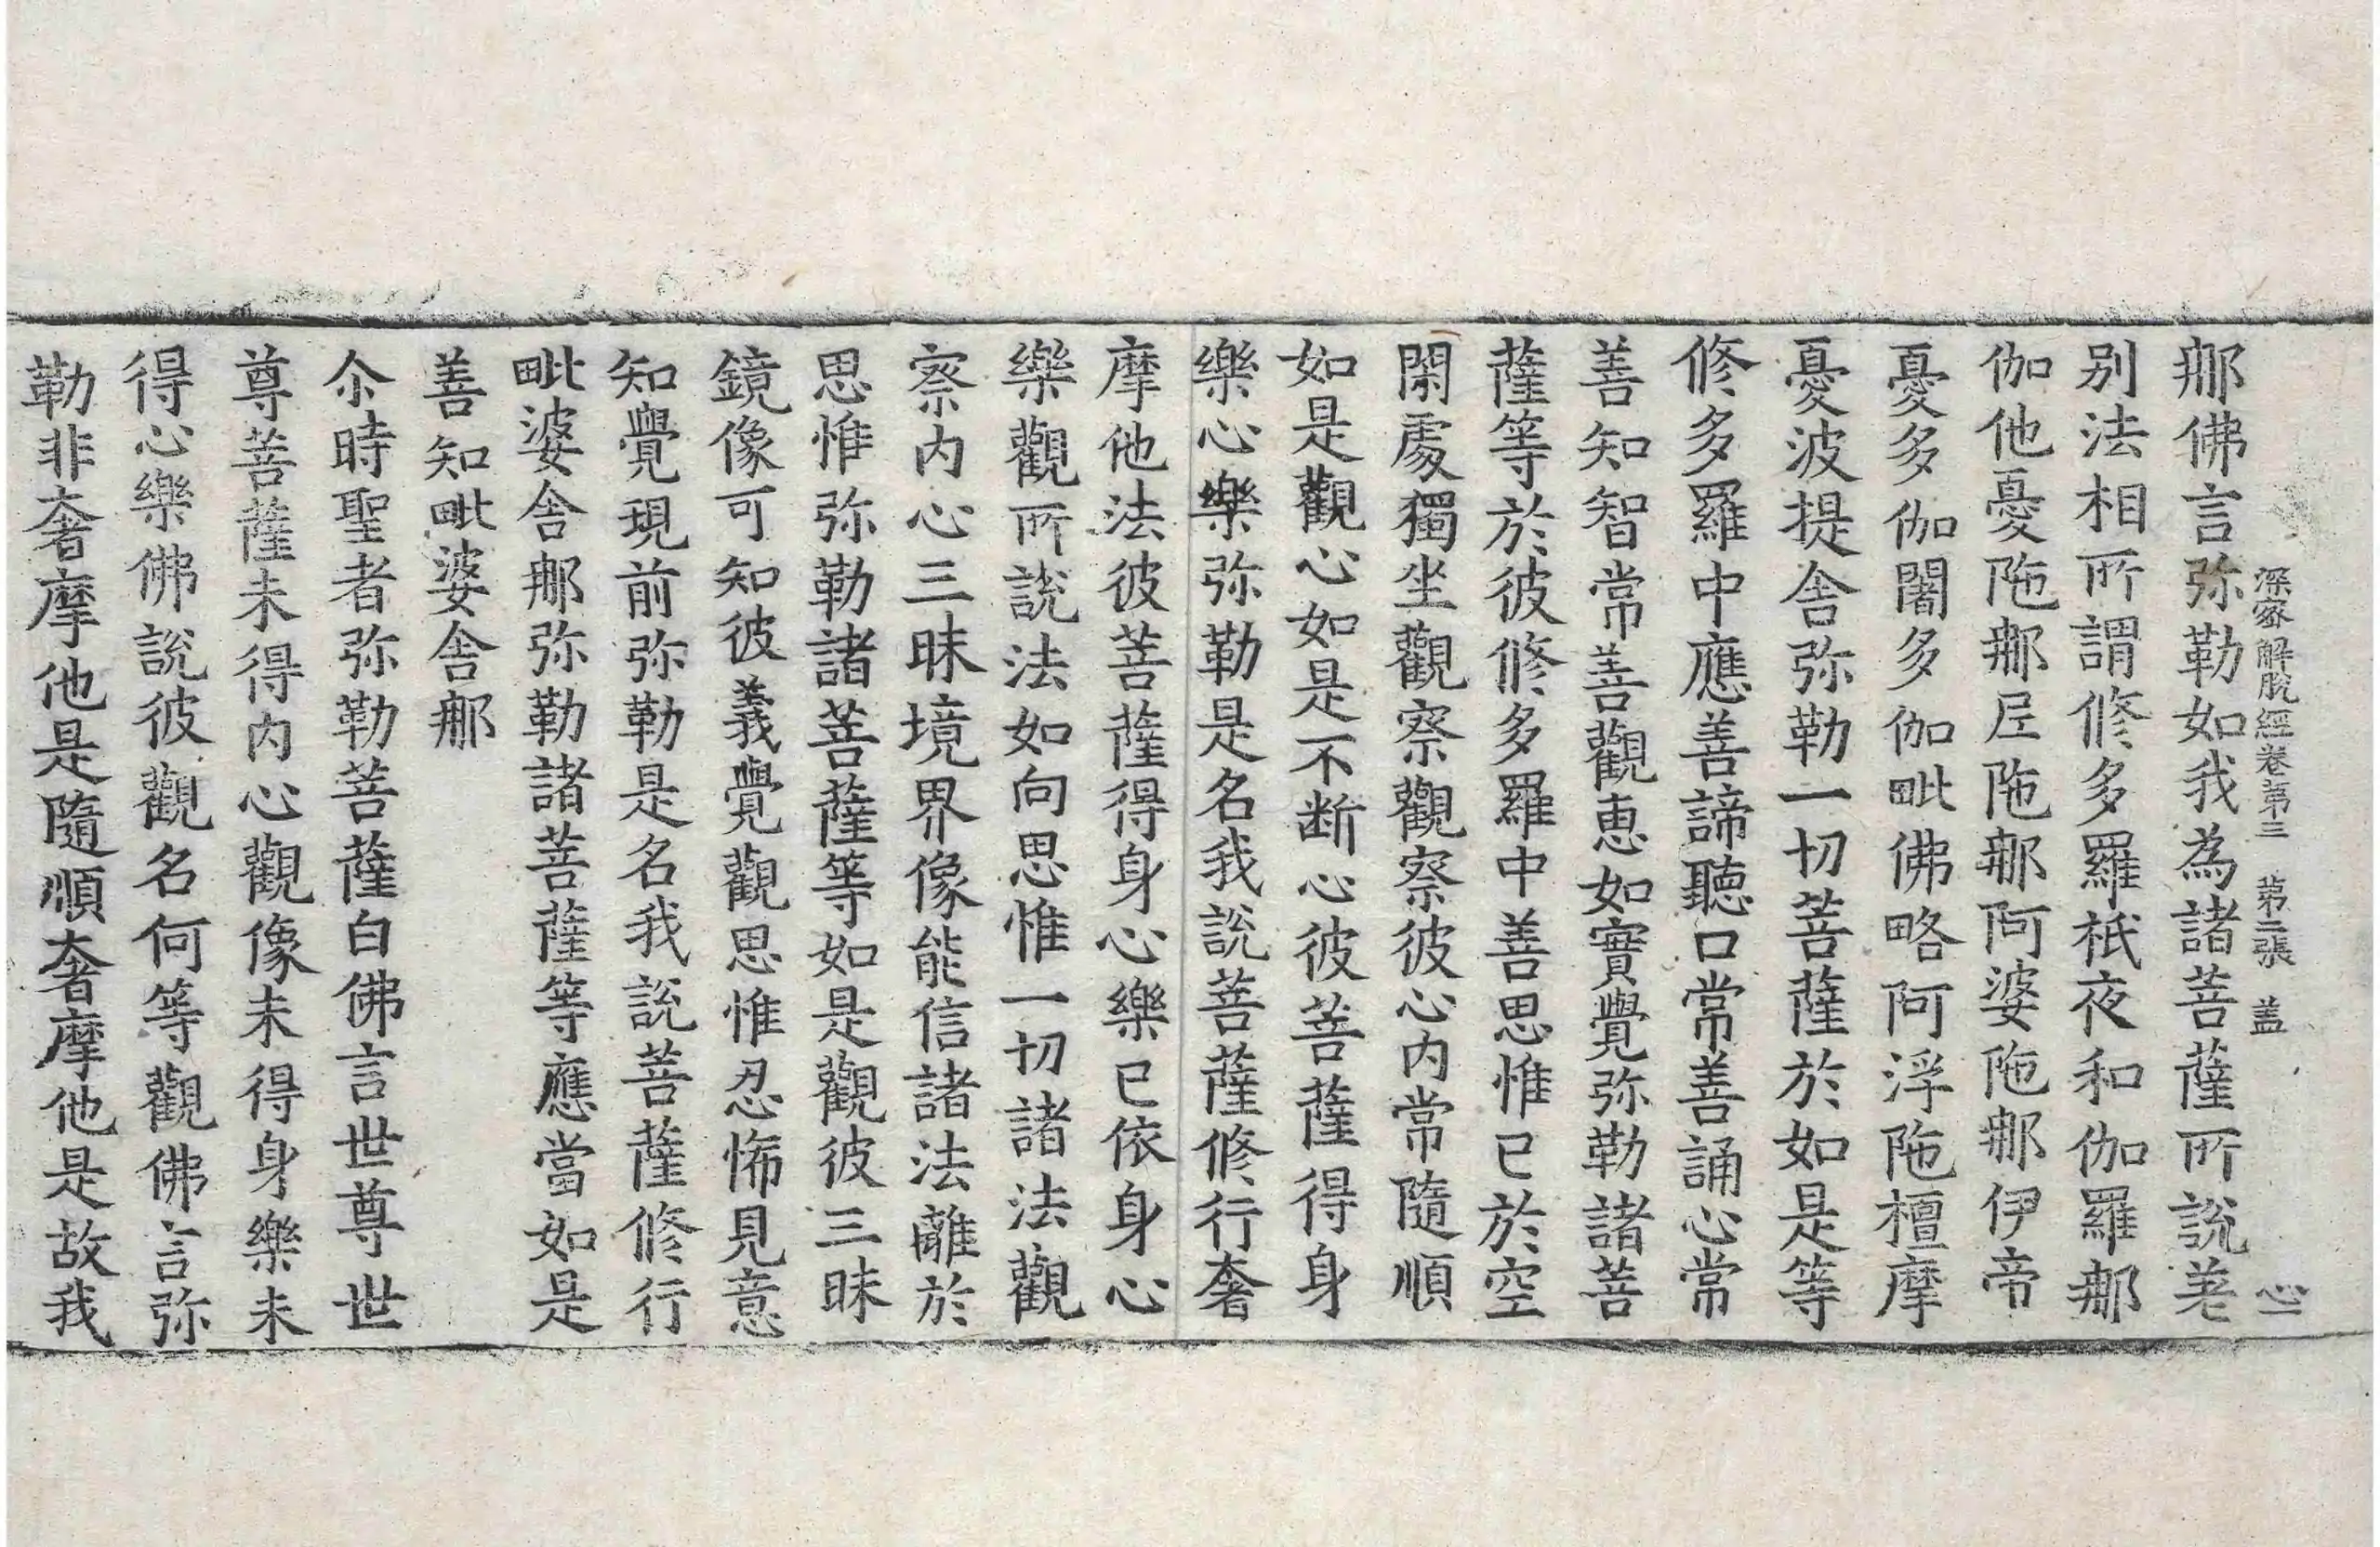 深密解脫經卷第三　第二張　盖　心一
那佛言弥勒如我為諸菩薩所說差
别法相所謂修多羅祇夜和伽羅那
伽他憂陁那尼陁那阿婆陁那伊帝
憂多伽闍多伽毗佛略阿浮陁檀摩
憂波提舍弥勒一切菩薩於如是等
修多羅中應善諦聽口常善誦心常
善知智常善觀惠如實覺弥勒諸菩
薩等於彼修多羅中善思惟已於空
閑處獨坐觀察觀察彼心内常隨順
如是觀心如是不断心彼菩薩得身
樂心樂弥勒是名我說菩薩修行奢
摩他法彼菩薩得身心樂已依身心
樂觀所說法如向思惟一切諸法觀
察内心三昧境界像能信諸法離於
思惟弥勒諸菩薩等如是觀彼三昧
鏡像可知彼義覺觀思惟忍怖見意
知覺現前弥勒是名我說菩薩修行
毗婆舍那弥勒諸菩薩等應當如是
善知毗婆舍那
尒時聖者弥勒菩薩白佛言世尊世
尊菩薩未得内心觀像未得身樂未
得心樂佛說彼觀名何等觀佛言弥
勒非奢摩他是隨順奢摩他是故我